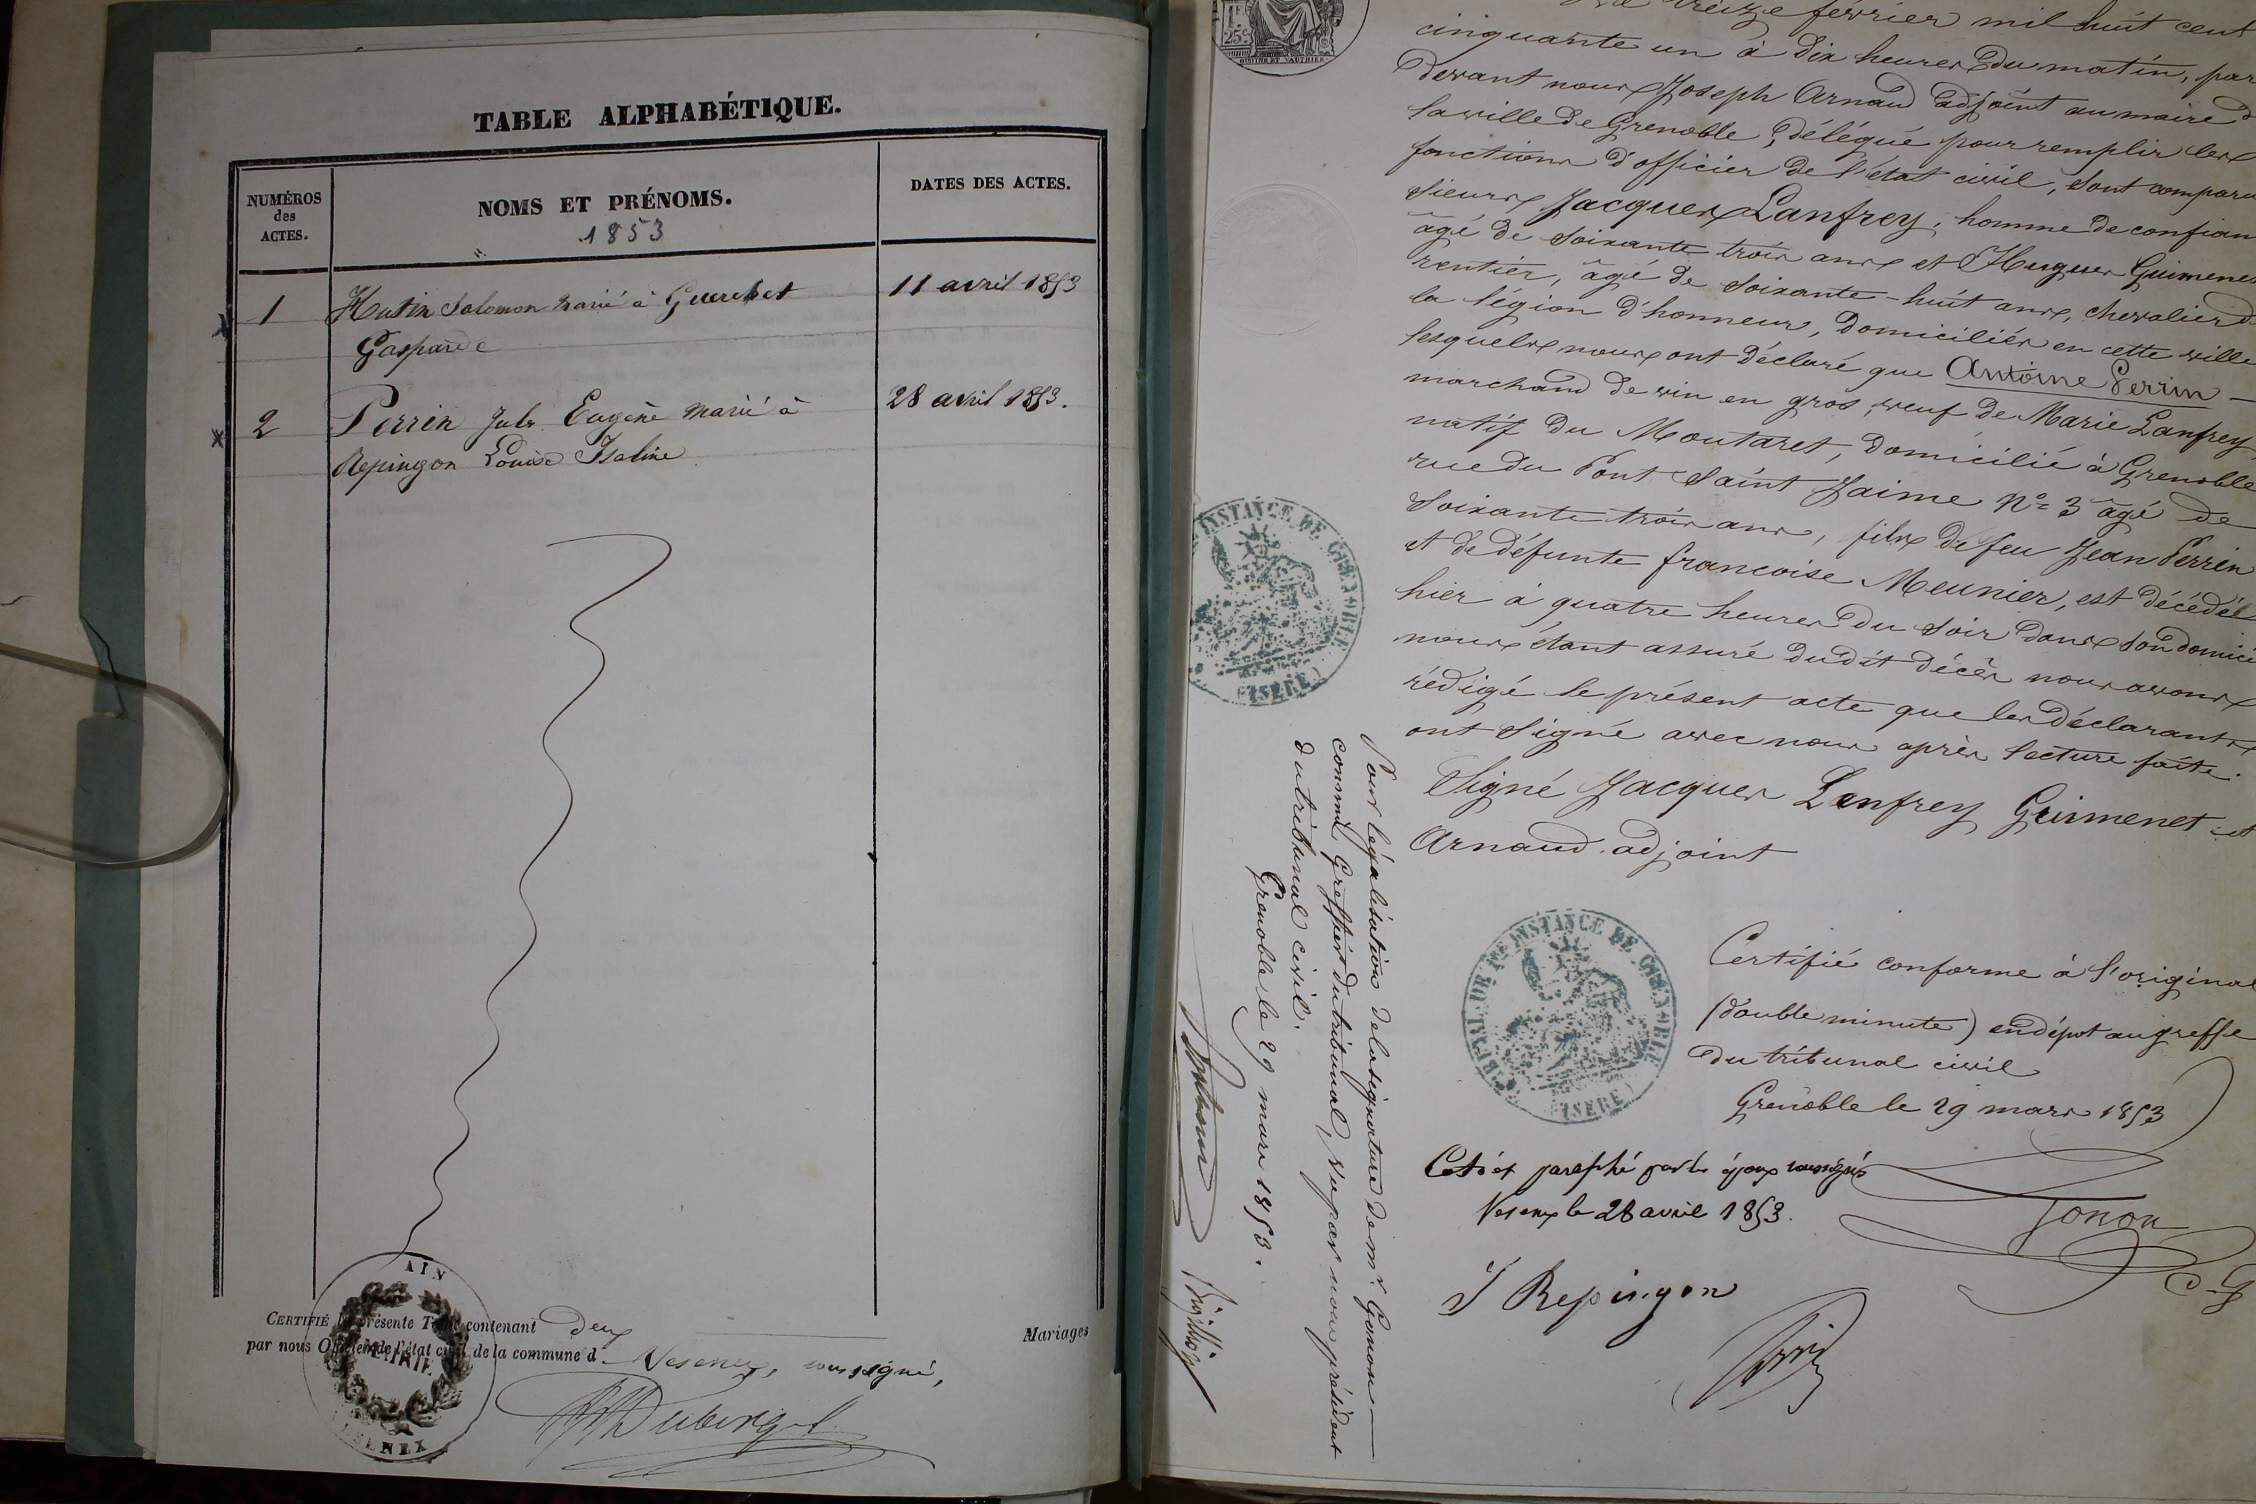 TABLE ALPHABÉTIQUE.
NUMÉROS
des
ACTES.
NOMS ET PRÉNOMS.
1853
DATES DES ACTES.
1 Hutin Salomon marié à Guerchet 11 avril 1853
Gasparde
2 Perrin Jules Eugène marié à 28 avril 1853.
Repingon Louise Isaline
CERTIFIÉ la présente Table contenant deux Mariages
par nous Officier de l'état civil de la commune d Vesenex, soussigné,
AIN
MAIRIE
VESENEX
1F.
25c
treize février mil huit cent
cinquante un à dix heures du matin, par
devant nous Joseph Arnaud adjoint au maire d
la ville de Grenoble, délégué pour remplir les
fonctions d'officier de l'état civil, sont comparu
sieurs Jacques Lanfrey, homme de confian
âgé de soixante trois ans et Hugues Guimenet
rentier, âgé de soixante-huit ans, chevalier d
la légion d'honneur, domiciliés en cette ville
lesquels nous ont déclaré que Antoine Perrin
marchand de vin en gros, veuf de Marie Lanfrey,
natif du Moutaret, domicilié à Grenoble
rue du Pont Saint Jaime No 3 âgé de
soixante trois ans, fils de feu Jean Perrin
et de défunte francoise Meunier, est décédé
hier à quatre heures du soir dans son domici
nous étant assuré dudit décès nous avons
rédigé le présent acte que les déclarants
ont signé avec nous après lecture faite.
Signé Jacques Lanfrey Guimenet et
Arnaud adjoint
TRIBUNAL DE 1RE INSTANCE DE GRENOBLE
(ISERE)
INSTANCE DE GRENOBLE
(ISERE)
Certifié conforme à l'original
(double minute) en dépot au greffe
du tribunal civil
Grenoble le 29 mars 1853
Gonon
C. G
Coté et paraphé par les époux soussignés
Vesenex le 28 avril 1853.
I Repingon
Perrin
Pour légalisation de la signature de Mr. Gonon
commis Greffier du tribunal, vu par nous président
du tribunal civil.
Grenoble le 29 mars 1853.